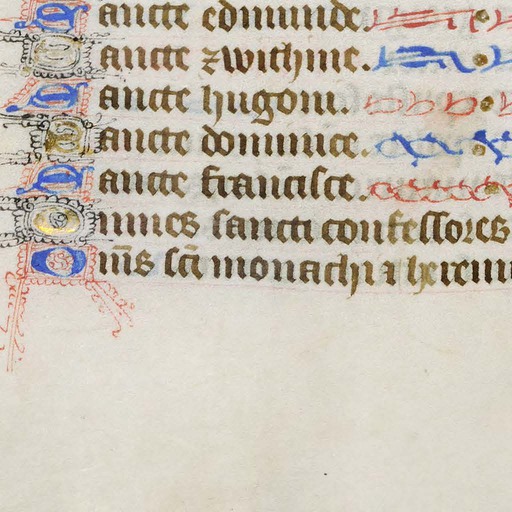 Sancte edmunde.
Sancte zwithine.
Sancte hugoni.
Sancte dominice.
Sancte francisce.
Omnes sancti confessores
Om̄s sc̄i monachi ⁊ heremi